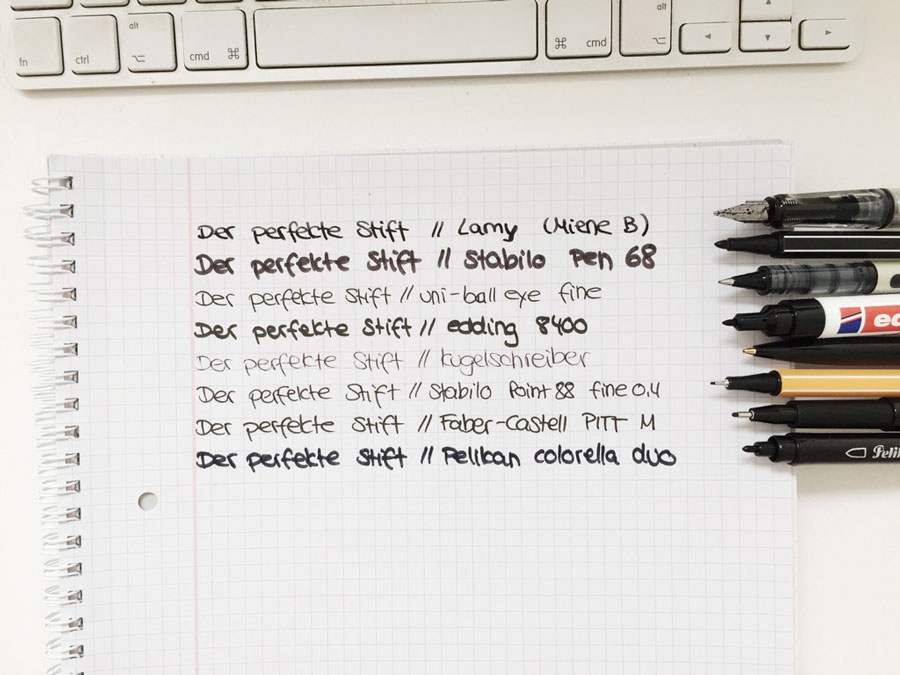 fn ctrl alt ⌥ cmd ⌘ ⌘ cmd alt ⌥ ◄ ▲ ▼ ►
Der perfekte Stift // Lamy (Miene B)
Der perfekte Stift // Stabilo Pen 68
Der perfekte Stift // uni-ball eye fine
Der perfekte Stift // edding 8400
Der perfekte Stift // Kugelschreiber
Der perfekte Stift // Stabilo Point 88 fine 0,4
Der perfekte Stift // Faber-Castell PITT M
Der perfekte Stift // Pelikan colorella duo
ed
Peli